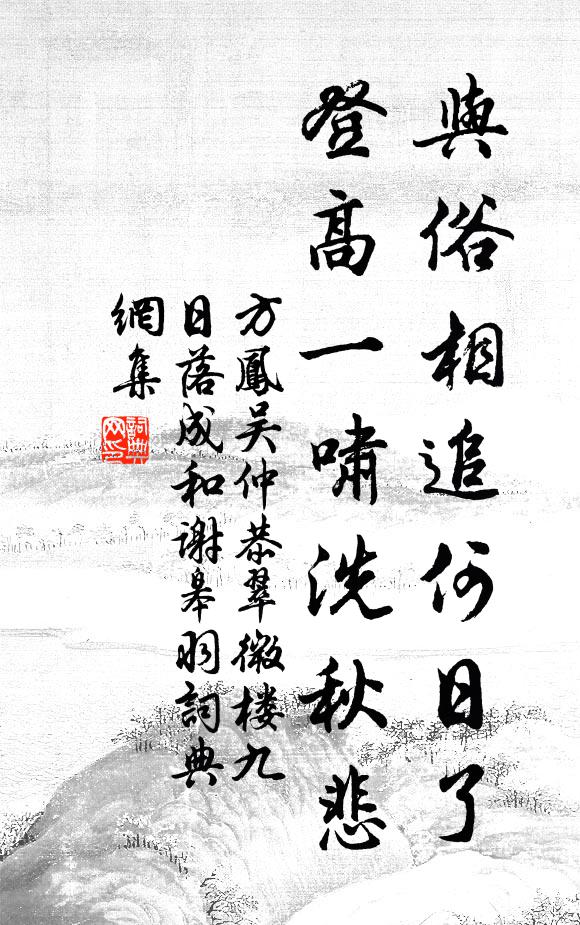 與俗相追何日了
登高一嘯洗秋悲
方鳳吴仲恭翠微楼九
日落成和谢皋羽詞典
網集
詞典